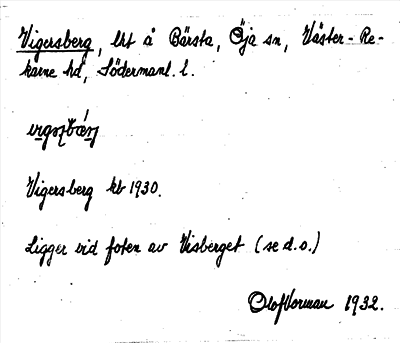 Vigersberg, lht å Bärsta, Öja sn, Väster-Re-
karne hd, Södermanl. l.
Vigersberg kb 1930.
Ligger vid foten av Visberget (se d.o.)
Olof Norman 1932.